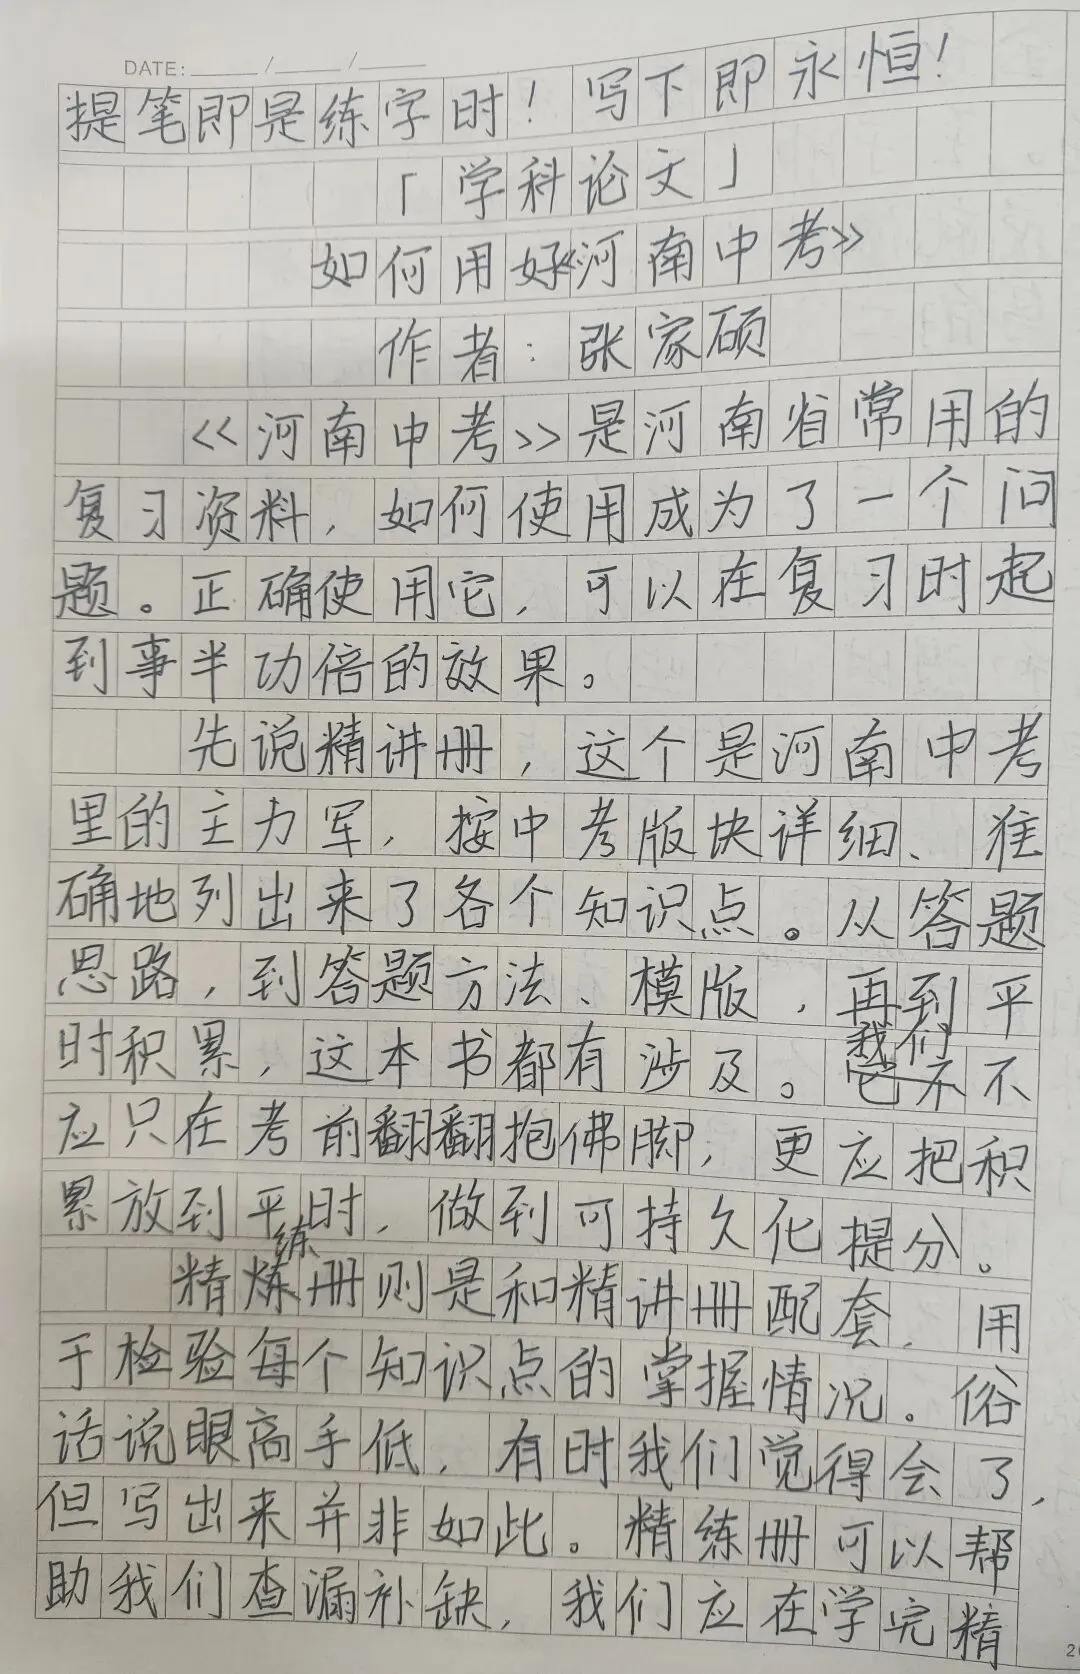 DATE: ____ / ____ / ____
提笔即是练字时！写下即永恒！
「学科论文」
如何用好《河南中考》
作者：张家硕
《河南中考》是河南省常用的
复习资料，如何使用成为了一个问
题。正确使用它，可以在复习时起
到事半功倍的效果。
先说精讲册，这个是河南中考
里的主力军，按中考版块详细、准
确地列出来了各个知识点。从答题
思路，到答题方法、模版，再到平
时积累，这本书都有涉及。我们不
应只在考前翻翻抱佛脚，更应把积
累放到平时，做到可持久化提分。
精练册则是和精讲册配套，用
于检验每个知识点的掌握情况。俗
话说眼高手低，有时我们觉得会了，
但写出来并非如此。精练册可以帮
助我们查漏补缺，我们应在学完精